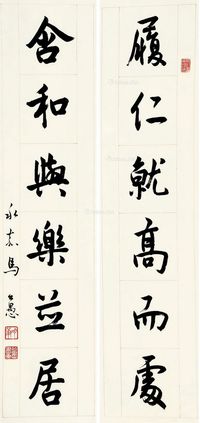 履仁就高而處
含和與樂並居
永嘉馬公愚